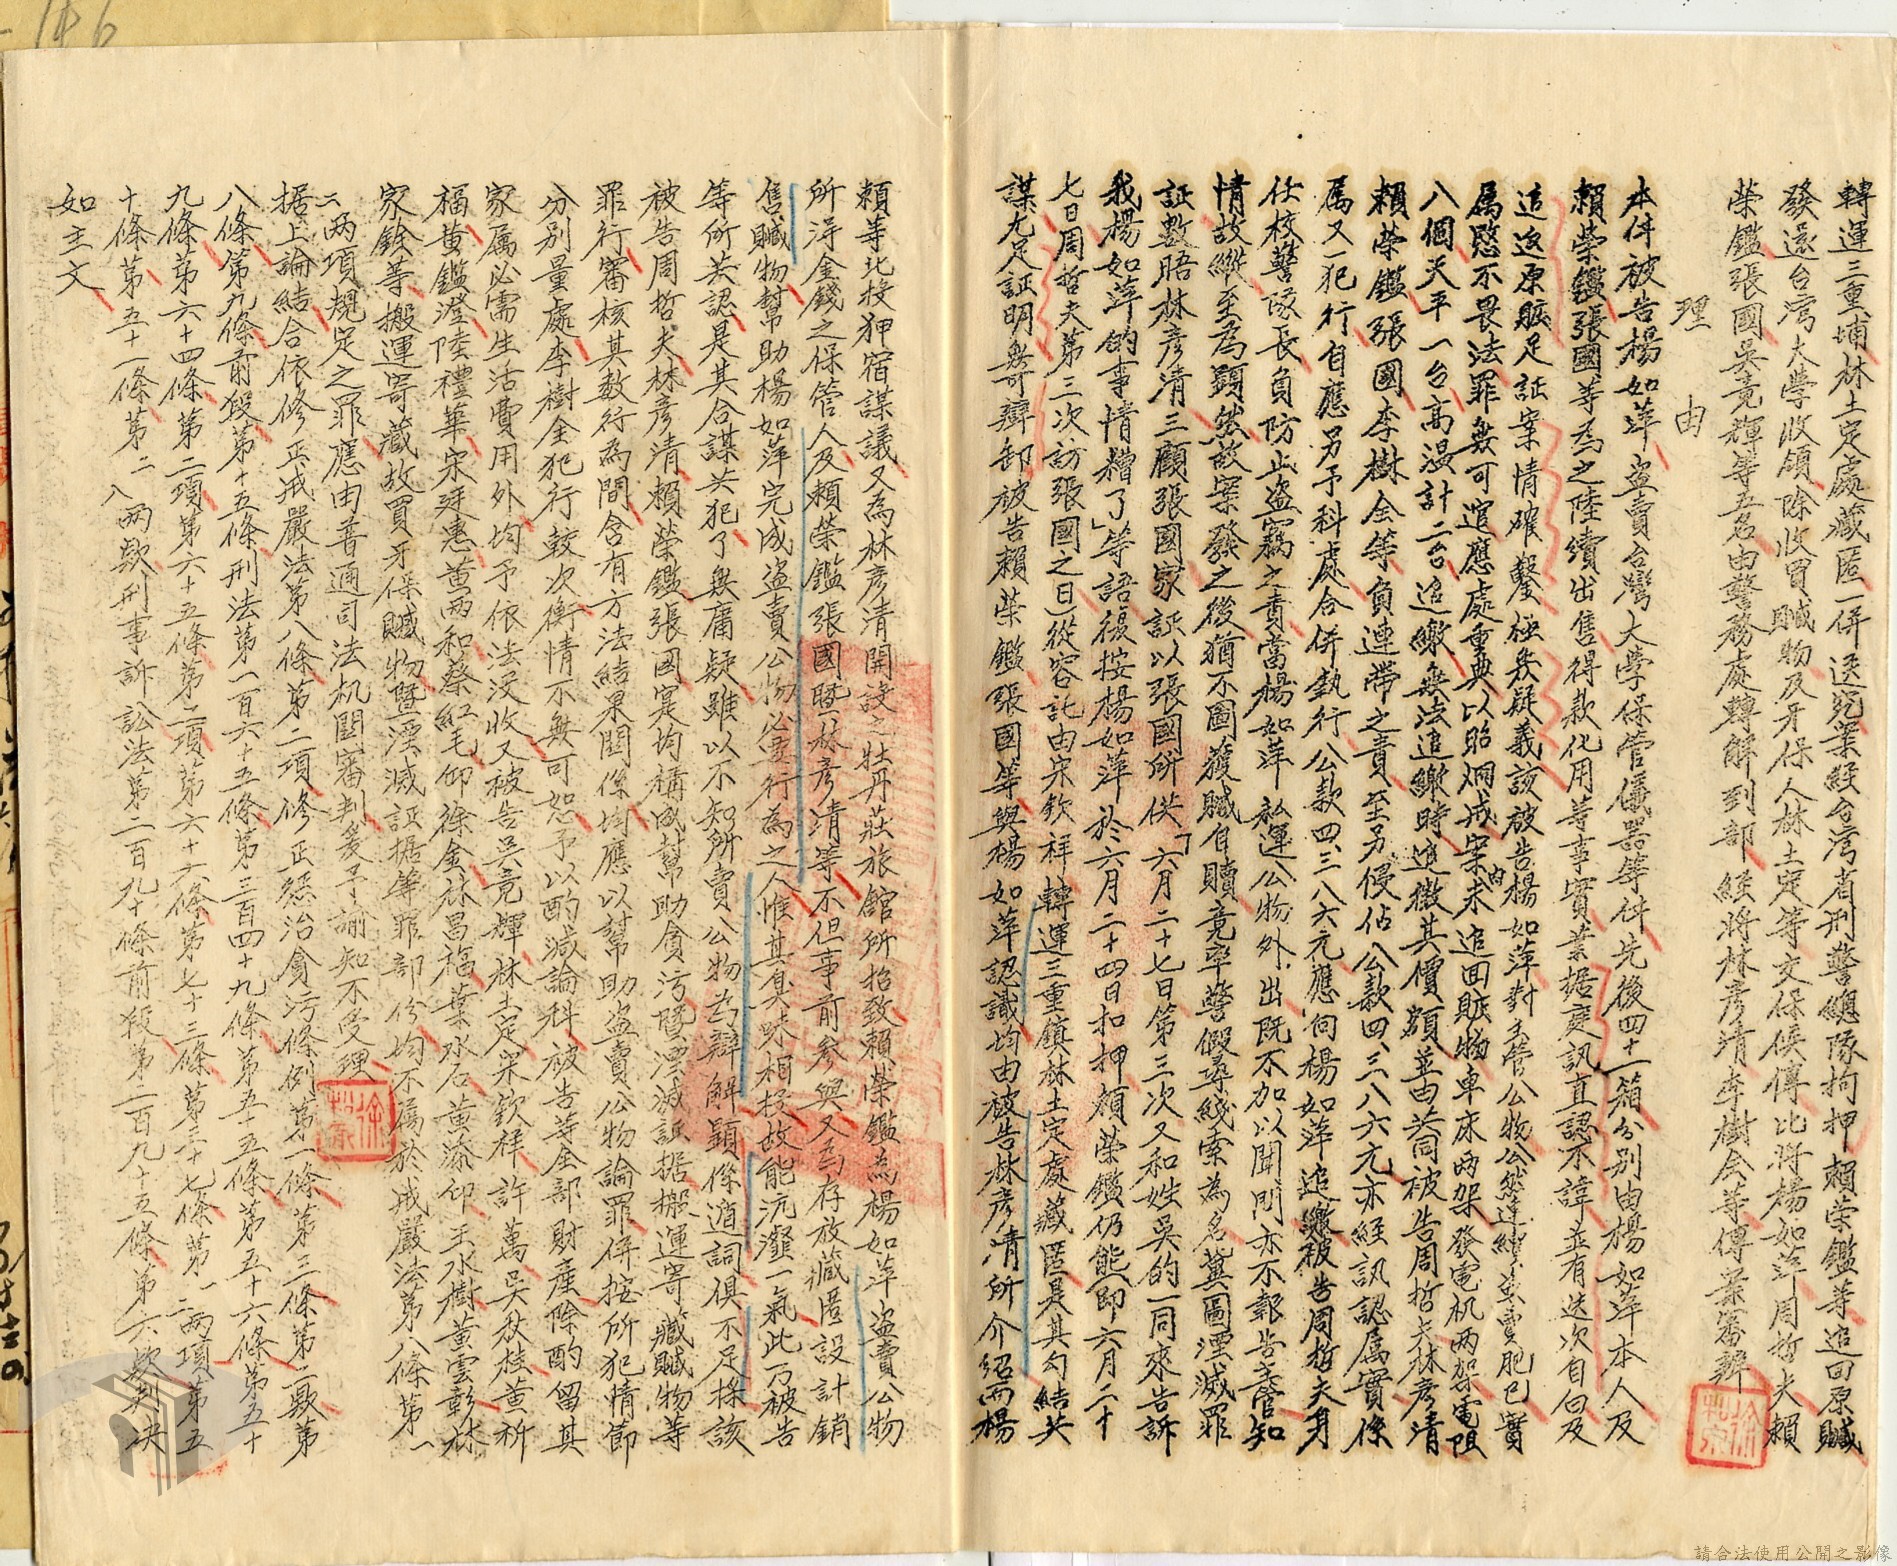 轉運三重埔林土定處藏匿一併送究案經台灣省刑警總隊拘押賴榮鑑等追回原贓
發還台灣大學收領除收買贓物及牙保人林土定等交保候傳比將楊如萍周哲夫賴
榮鑑張國吳竟輝等五名由警務處轉解到部經將林彥清李樹全等傳案審辦
理由
本件被告楊如萍盜賣台灣大學保管儀器等件先後四十一箱分別由楊如萍本人及
賴榮鑑張國等為之陸續出售得款化用等事實業据庭訊直認不諱並有迭次自白及
追返原賍足証案情確鑿極矣疑義該被告楊如萍對主管公物公然連續盜賣肥己實
属愍不畏法罪無可逭應處重典以昭烱戒案內未追回賍物車床兩架發電机兩架電阻
八個天平一台高溫計二台追繳無法追繳時追徵其價額並由共同被告周哲夫林彥清
賴榮鑑張國李樹全等負連帶之責至另侵佔公款四、三八六元亦經訊認属實係
属又一犯行自應另予科處合併執行公款四、三八六元應向楊如萍追繳被告周哲夫身
任校警隊長負防止盜竊之責當楊如萍私運公物外出既不加以聞問亦不報告主管知
情故縱至為顯然故案發之後猶不圖獲贓自贖竟率警假尋綫索為名冀圖湮滅罪
証數晤林彥清三顧張國家証以張國所供「六月二十七日第三次又和姓吳的一同來告訴
我楊如萍的事情糟了」等語復按楊如萍於六月二十四日扣押賴榮鑑仍能(即六月二十
七日周哲夫第三次訪張國之日)從容託由宋欽祥轉運三重鎮林土定處藏匿是其勾結共
謀尤足証明無可辯卸被告賴榮鑑張國等與楊如萍認識均由被告林彥清所介紹而楊
賴等北投狎宿謀議又為林彥清開設之牡丹莊旅館所招致賴榮鑑為楊如萍盜賣公物
所得金錢之保管人及賴榮鑑張國暨林彥清等不但事前參與又為存放藏匿設計銷
售贓物幫助楊如萍完成盜賣公物必要行為之人惟其臭味相投故能沆瀣一氣此乃被告
等所若認是其合謀共犯了無庸疑雖以不知所賣公物為辯解顯係遁詞俱不足採該
被告周哲夫林彥清賴榮鑑張國寔均構成幫助貪污暨湮滅証据搬運寄藏贓物等
罪行審核其數行為間含有方法結果関係均應以幫助盜賣公物論罪併按所犯情節
分別量處李樹全犯行較次衡情不無可恕予以酌減論科被告等全部財產除酌留其
家属必需生活費用外均予依法沒收又被告吳竟輝林土定宋欽祥許萬吳秋桂董祈
福黃鑑澄陸禮華宋廷惠董兩和蔡紅毛仰徐金林昌福葉水石黃添仰王水樹黃雲彰林
家鋒等搬運寄藏故買牙保贓物暨湮滅証据等罪部份均不属於戒嚴法第八條第一
二兩項規定之罪應由普通司法机関審判爰予諭知不受理
据上論結合依修正戒嚴法第八條第二項修正懲治貪污條例第一條第三條第二款第
八條第九條前段第十五條刑法第一百六十五條第三百四十九條第五十五條第五十六條第五十
九條第六十四條第二項第六十五條第二項第六十六條第七十三條第三十七條第一二兩項第五
十條第五十一條第二八兩款刑事訴訟法第二百九十條前段第二百九十五條第六款判決
如主文
146
請合法使用公開之影像